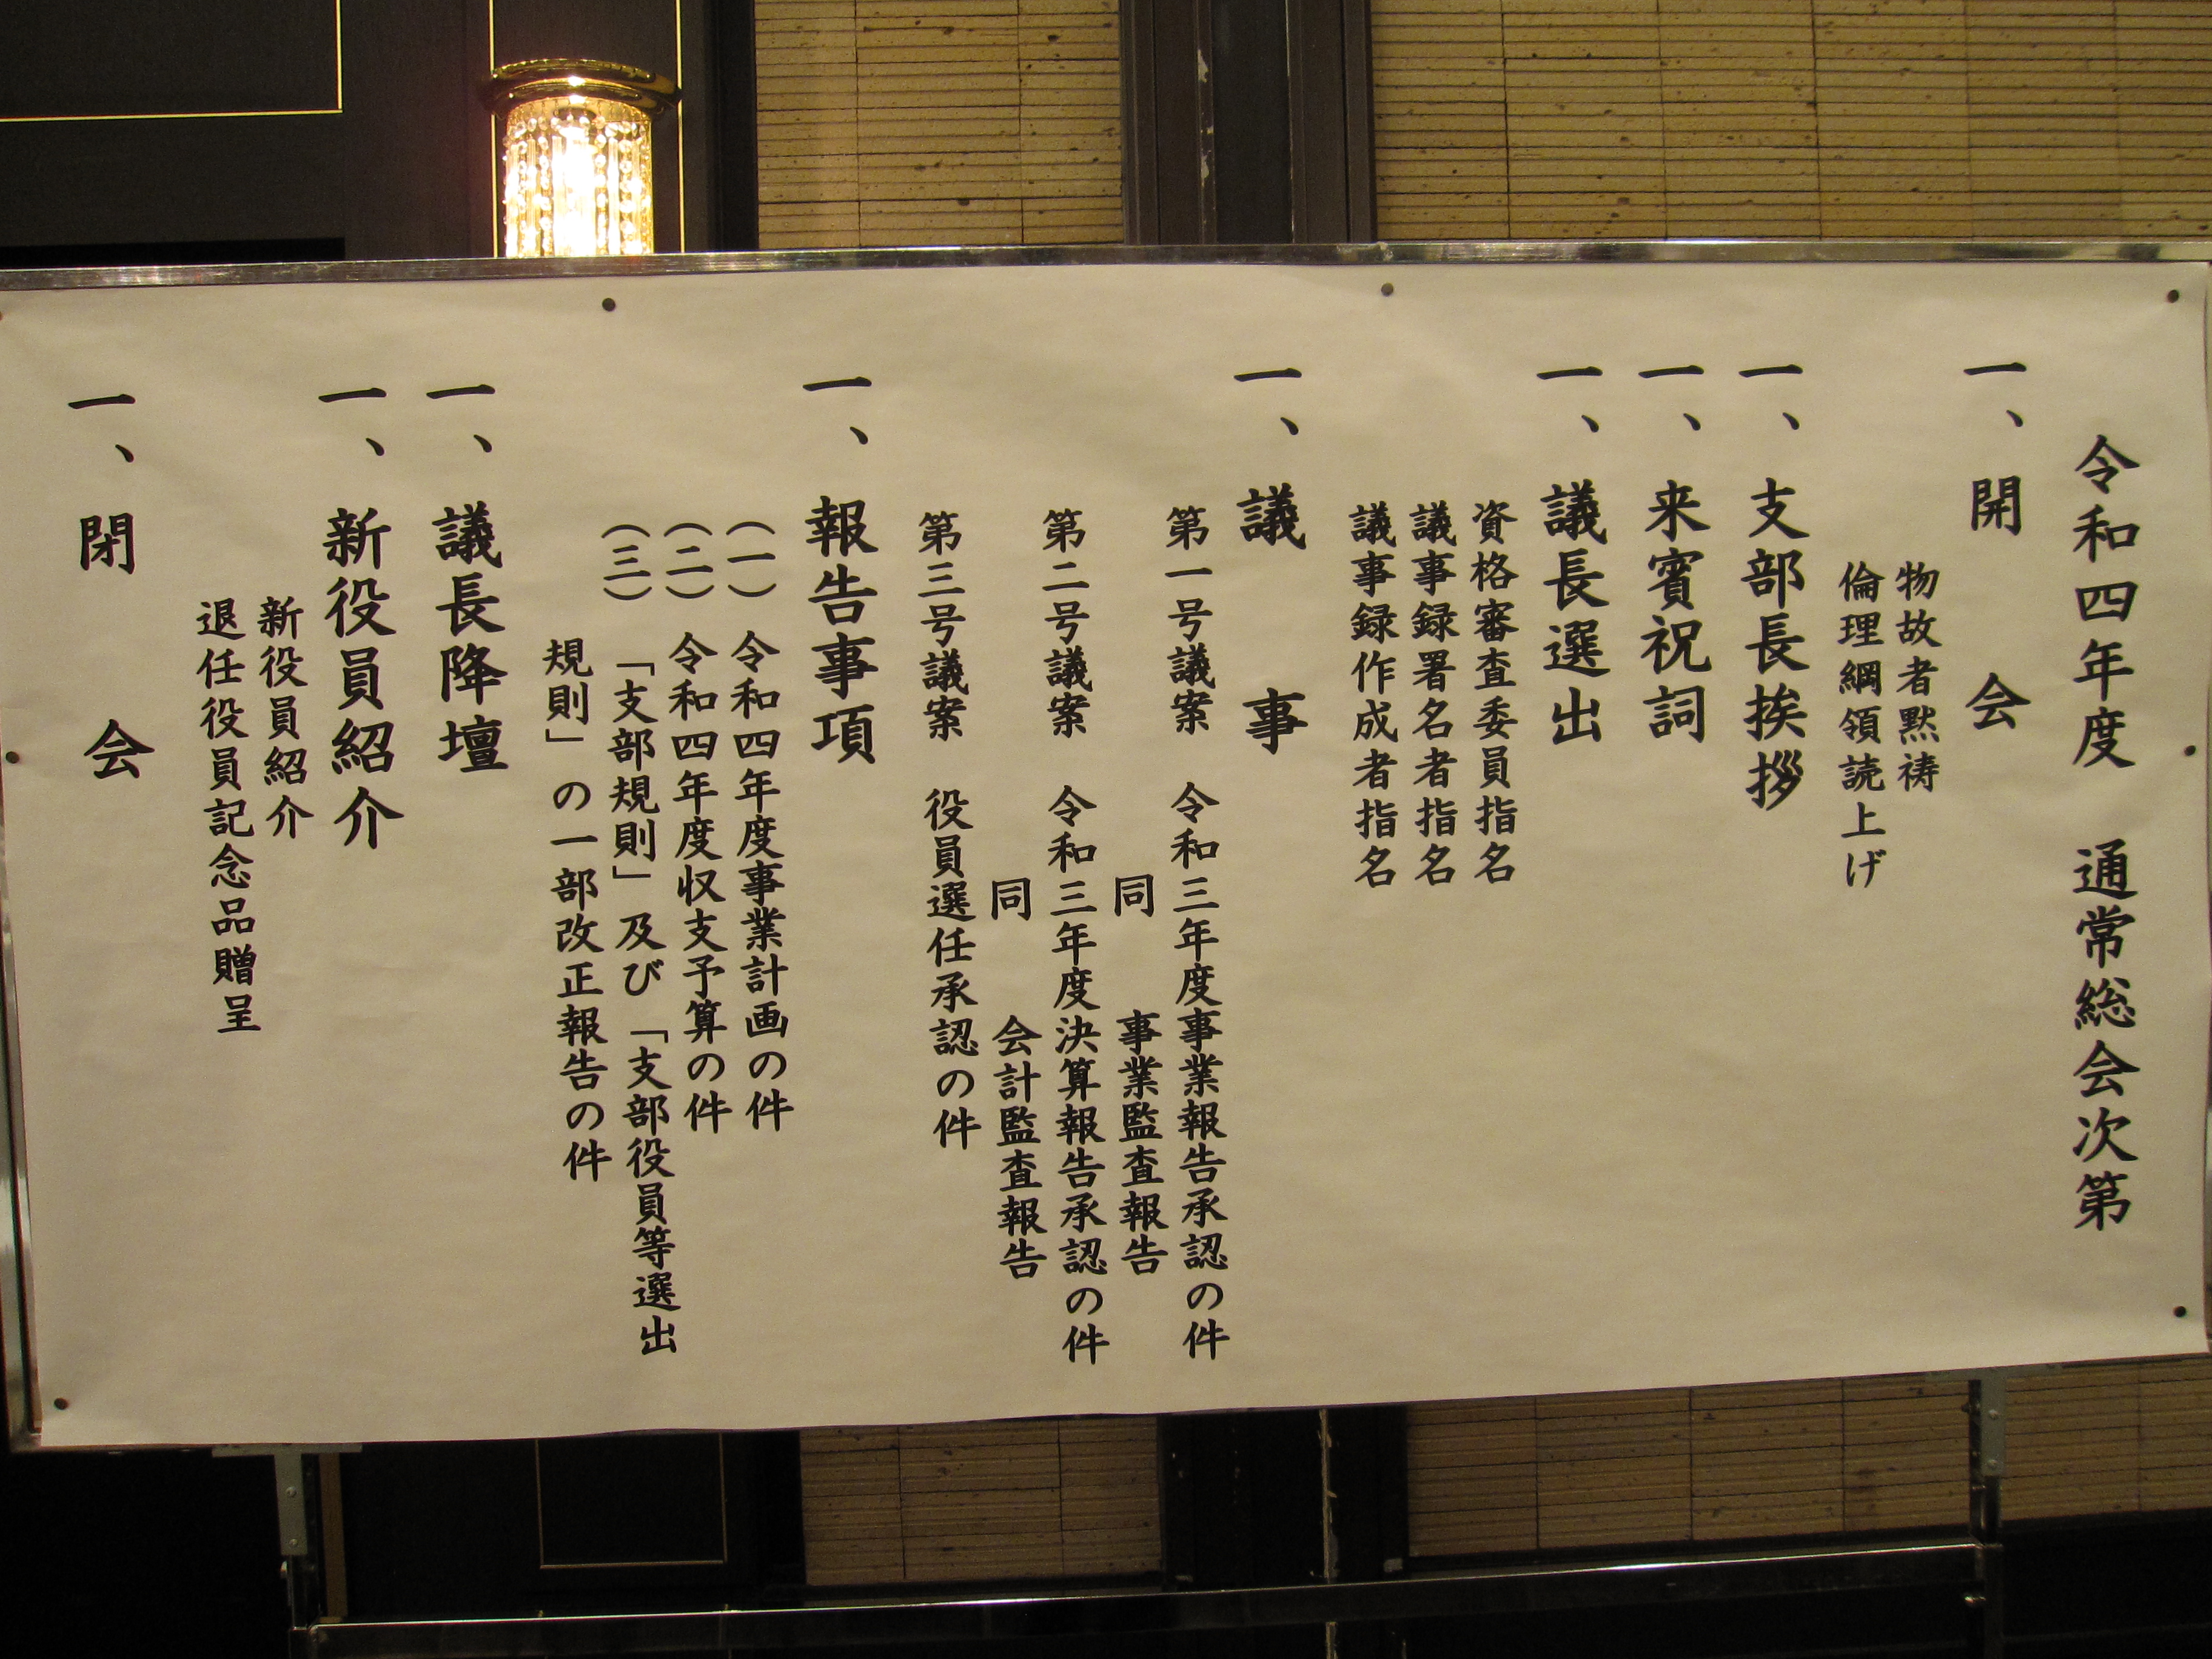 令和四年度　通常総会次第
一、開　会
物故者黙祷
倫理綱領読上げ
一、支部長挨拶
一、来賓祝詞
一、議長選出
資格審査委員指名
議事録署名者指名
議事録作成者指名
一、議　事
第一号議案　令和三年度事業報告承認の件
同　事業監査報告
第二号議案　令和三年度決算報告承認の件
同　会計監査報告
第三号議案　役員選任承認の件
一、報告事項
（一）令和四年度事業計画の件
（二）令和四年度収支予算の件
（三）「支部規則」及び「支部役員等選出
規則」の一部改正報告の件
一、議長降壇
一、新役員紹介
新役員紹介
退任役員記念品贈呈
一、閉　会